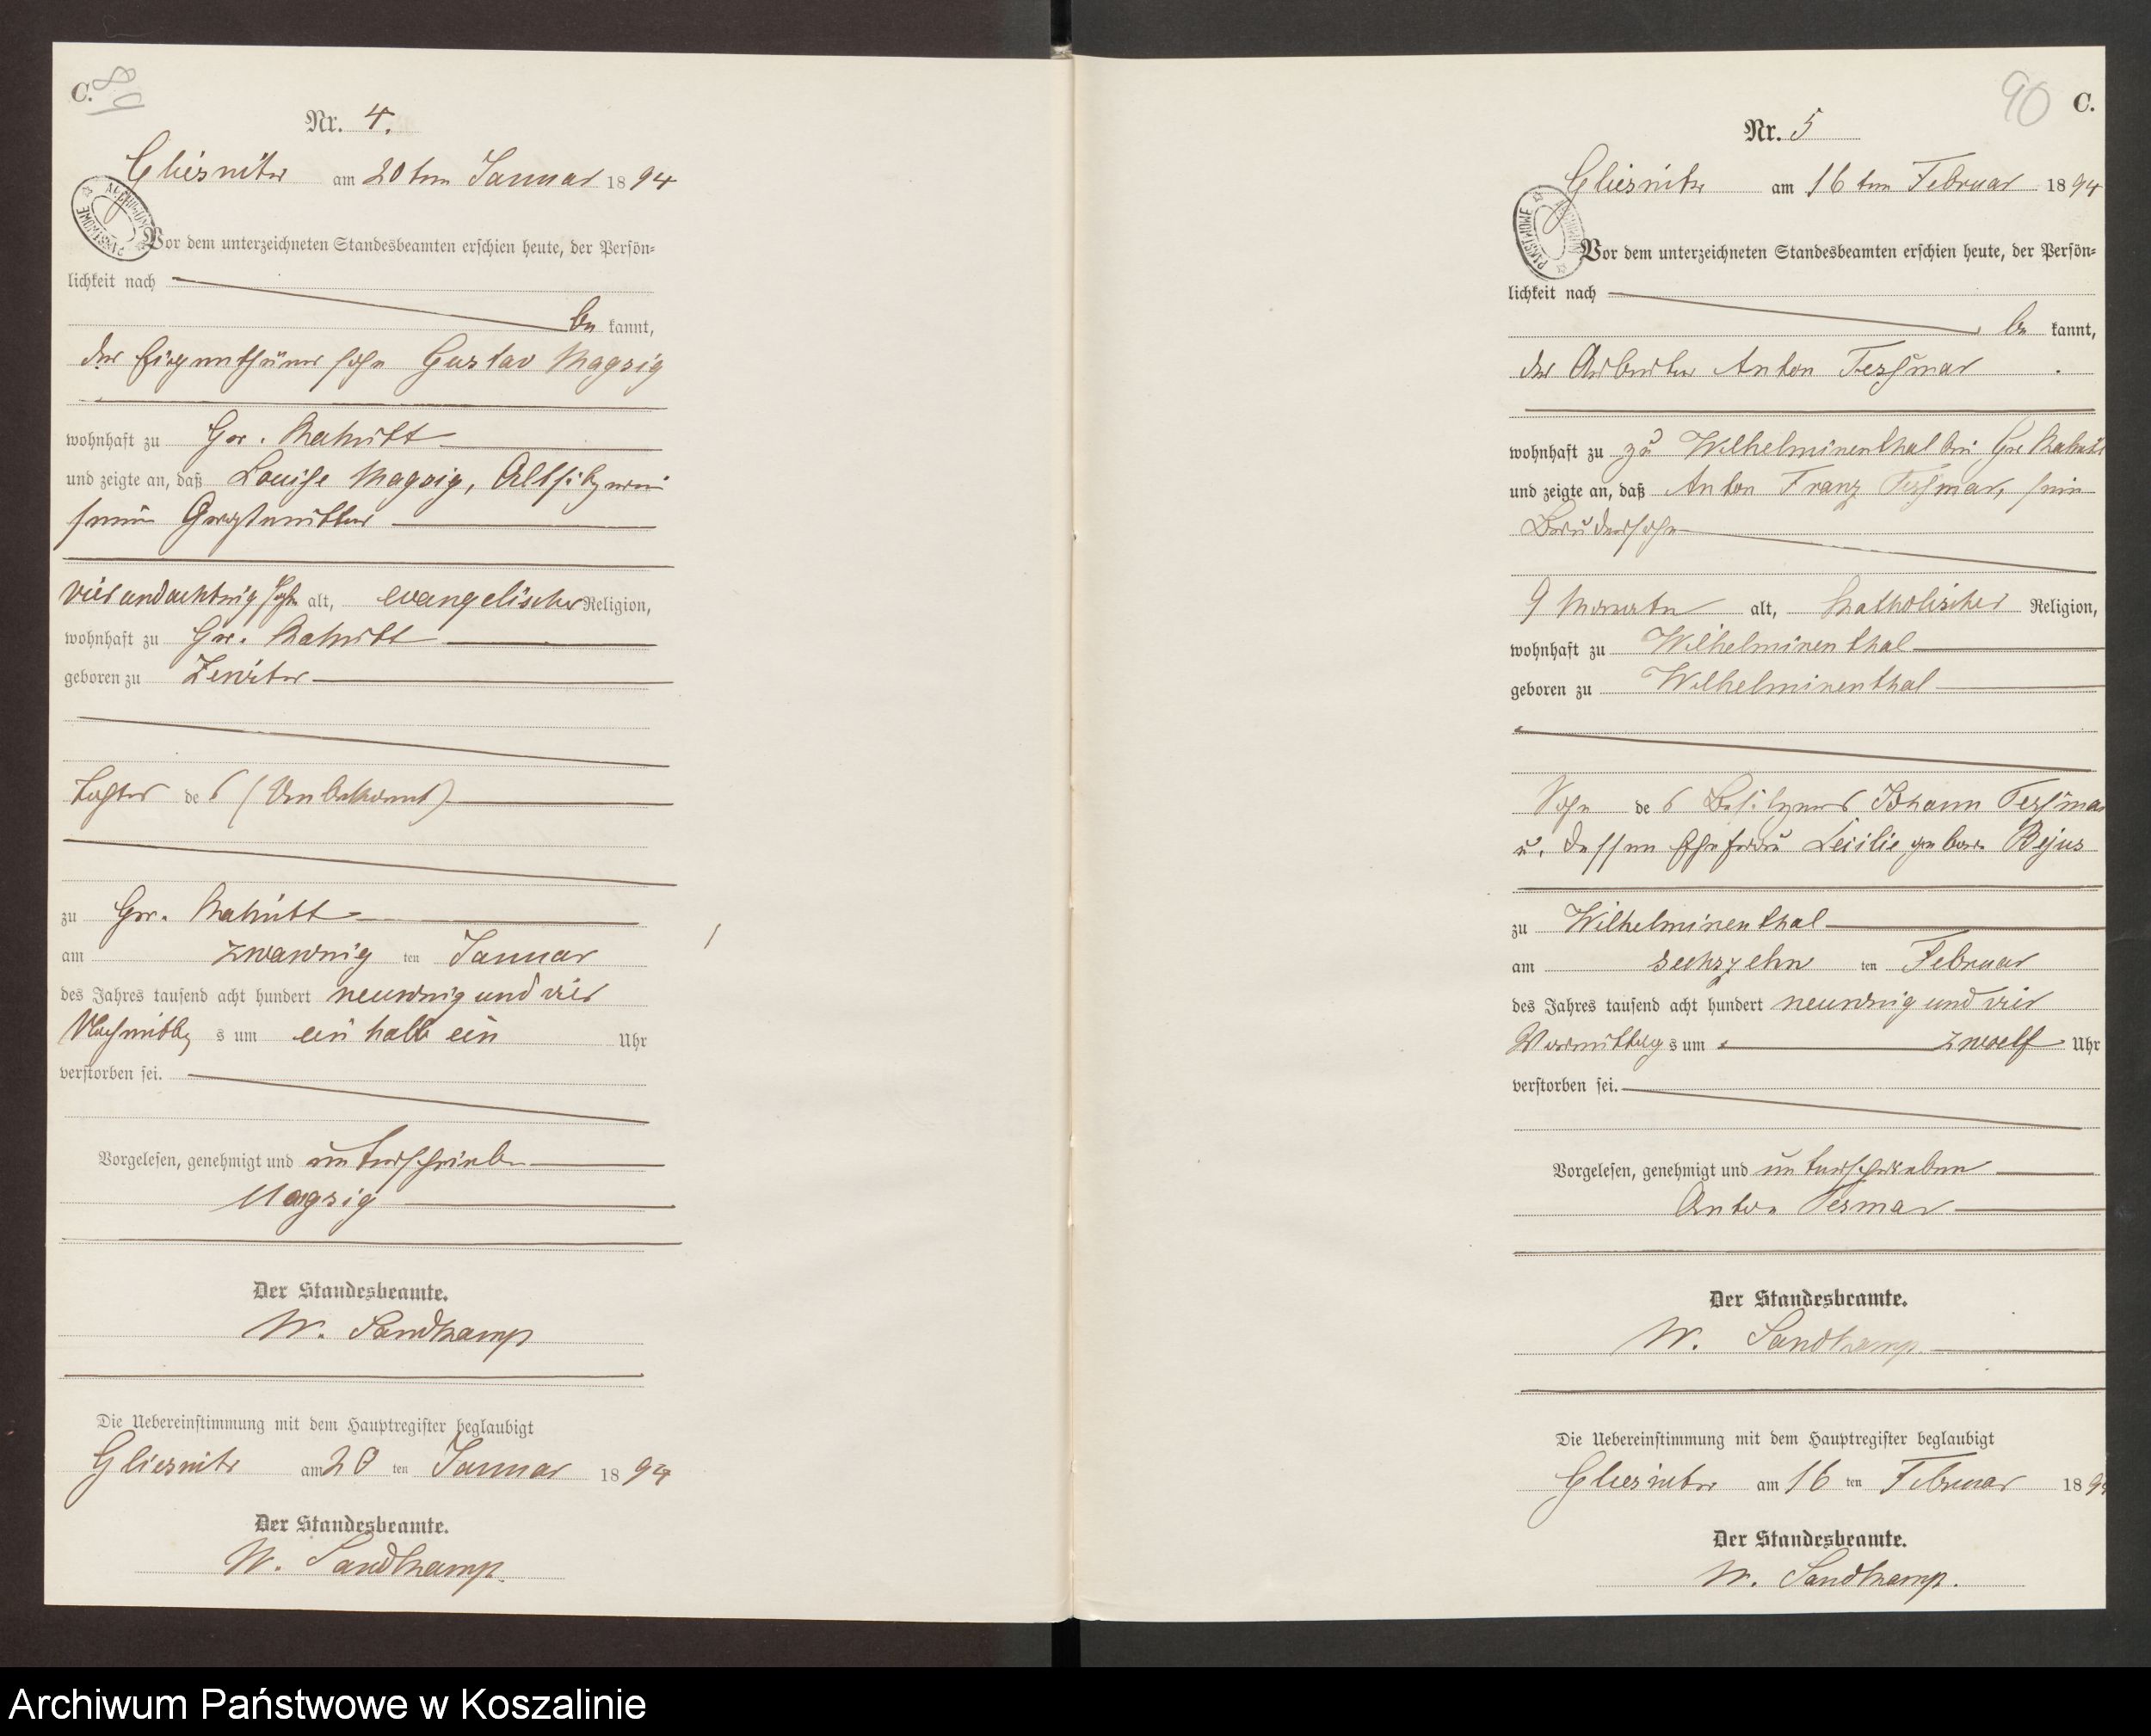 C.
89
Nr. 4.
Gliesnitz am 20ten Januar 1894
Vor dem unterzeichneten Standesbeamten erschien heute, der Persön-
lichkeit nach
be kannt,
der Eigenthümersohn Gustav Magsig
wohnhaft zu Gr.
und zeigte an, daß Louise Magsig, Altsitzerin
seine Großmutter
vierundachtzig Jahre alt, evangelischer Religion,
wohnhaft zu Gr.
geboren zu
Tochter des (Unbekannt)
zu Gr.
am zwanzig ten Januar
des Jahres tausend acht hundert neunzig und vier
Nachmittags um ein halb ein Uhr
verstorben sei.
Vorgelesen, genehmigt und unterschrieben
Magsig
Der Standesbeamte.
W. Sandkamp
Die Uebereinstimmung mit dem Hauptregister beglaubigt
Gliesnitz am 20 ten Januar 1894
Der Standesbeamte.
W. Sandkamp.
90
C.
Nr. 5
Gliesnitz am 16ten Februar 1894
Vor dem unterzeichneten Standesbeamten erschien heute, der Persön-
lichkeit nach
be kannt,
der Arbeiter Anton Tessmar
wohnhaft zu zu Wilhelminenthal bei Gr.
und zeigte an, daß Anton Franz Tessmar, sein
Brudersohn
9 Monate alt, katholischer Religion,
wohnhaft zu Wilhelminenthal
geboren zu Wilhelminenthal
Sohn des Besitzers Johann Tessmar
u. dessen Ehefrau Cecilie gebor. Bejus
zu Wilhelminenthal
am sechszehn ten Februar
des Jahres tausend acht hundert neunzig und vier
Vormittags um zwoelf Uhr
verstorben sei.
Vorgelesen, genehmigt und unterschrieben
Anton Tesmar
Der Standesbeamte.
W. Sandkamp.
Die Uebereinstimmung mit dem Hauptregister beglaubigt
Gliesnitz am 16 ten Februar 1894
Der Standesbeamte.
W. Sandkamp.
Archiwum Państwowe w Koszalinie